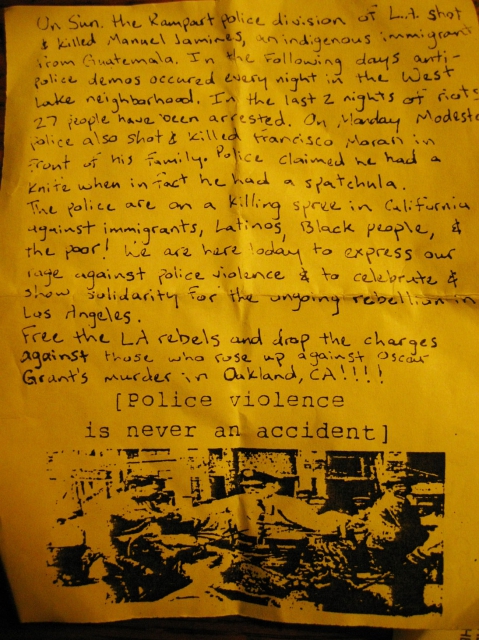 On Sun. the Rampart police division of L.A. shot
& killed Manuel Jamines, an indigenous immigrant
from Guatemala. In the following days anti-
police demos occured every night in the West
Lake neighborhood. In the last 2 nights of riots
27 people have been arrested. On Monday Modesto
police also shot & killed Francisco Moran in
front of his family. Police claimed he had a
knife when in fact he had a spatchula.
The police are on a killing spree in California
against immigrants, Latinos, Black people, &
the poor! We are here today to express our
rage against police violence & to celebrate &
show solidarity for the ongoing rebellion in
Los Angeles.
Free the LA rebels and drop the charges
against those who rose up against Oscar
Grant's murder in Oakland, CA!!!!
[Police violence
is never an accident]